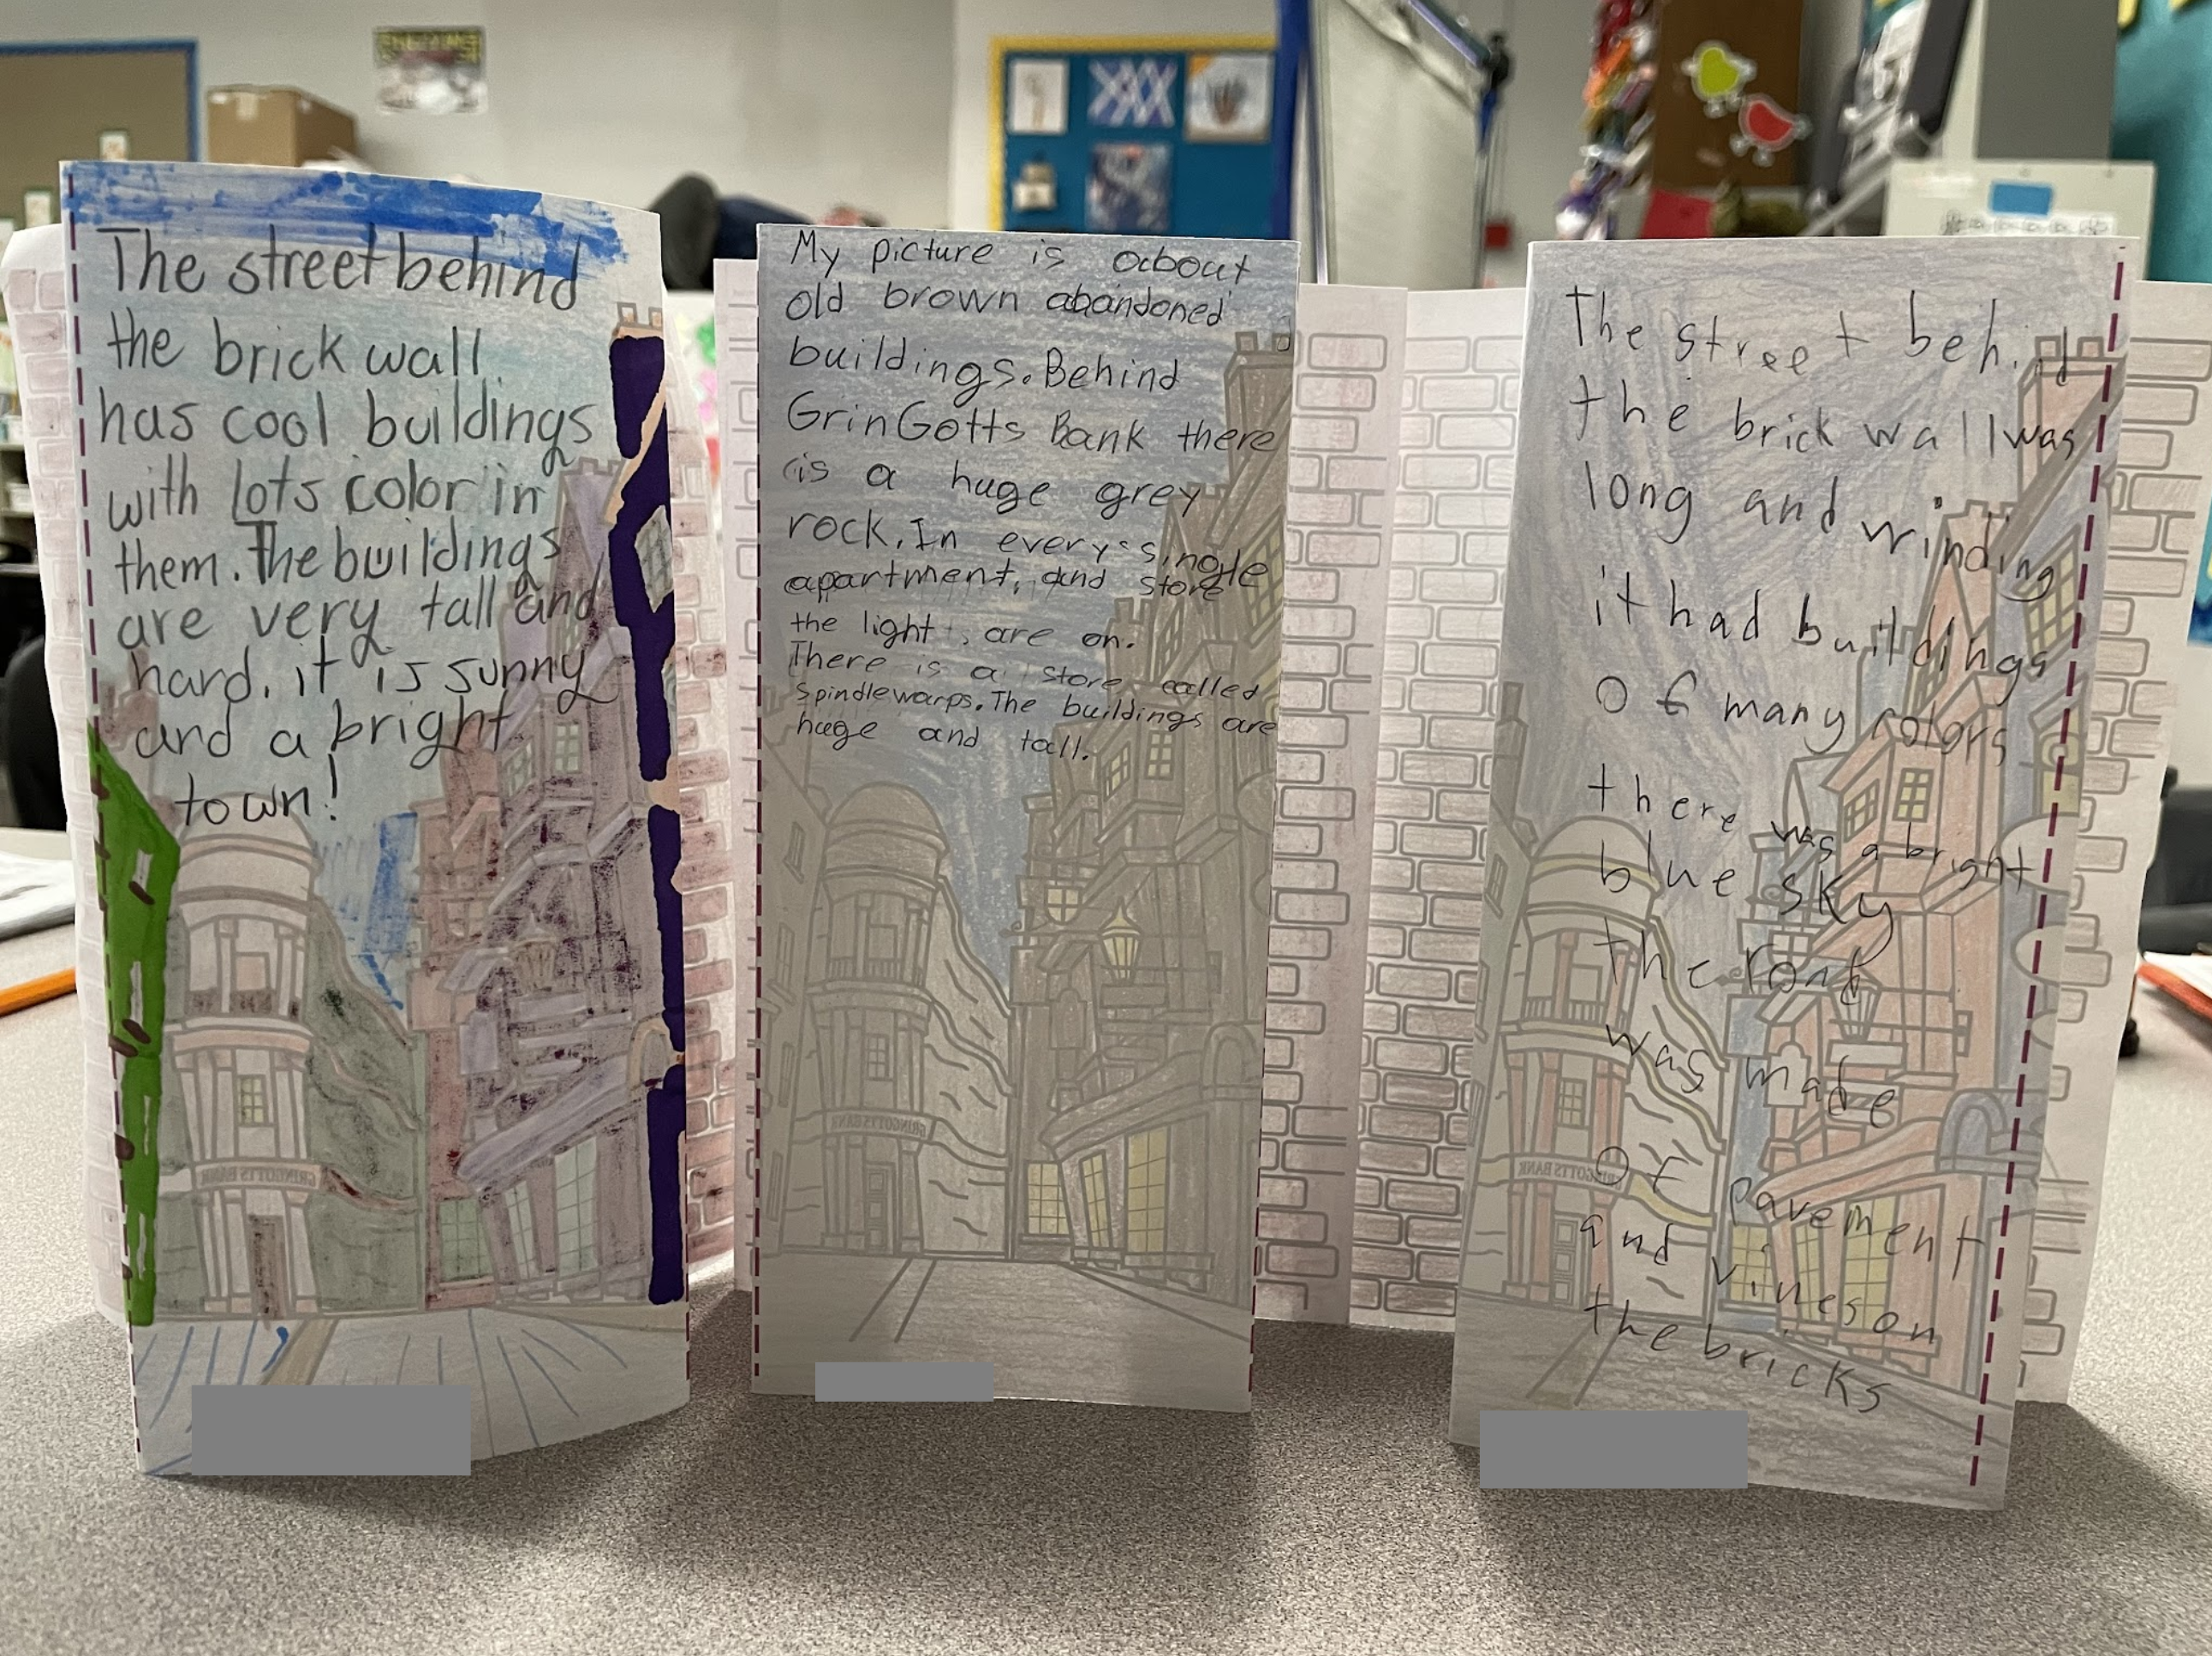 The street behind
the brick wall
has cool buildings
with lots color in
them. The buildings
are very tall and
hard. it is sunny
and a bright
town!
GRINGOTTS BANK
My picture is about
old brown abandoned
buildings. Behind
GrinGotts Bank there
is a huge grey
rock. In every single
apartment, and store
the light, are on.
There is a store called
Spindlewarps. The buildings are
huge and tall.
GRINGOTTS BANK
The street behind
the brick wall was
long and winding
it had buildings
of many colors
there was a bright
blue sky
the road
was made
of pavement
and vines on
the bricks
GRINGOTTS BANK